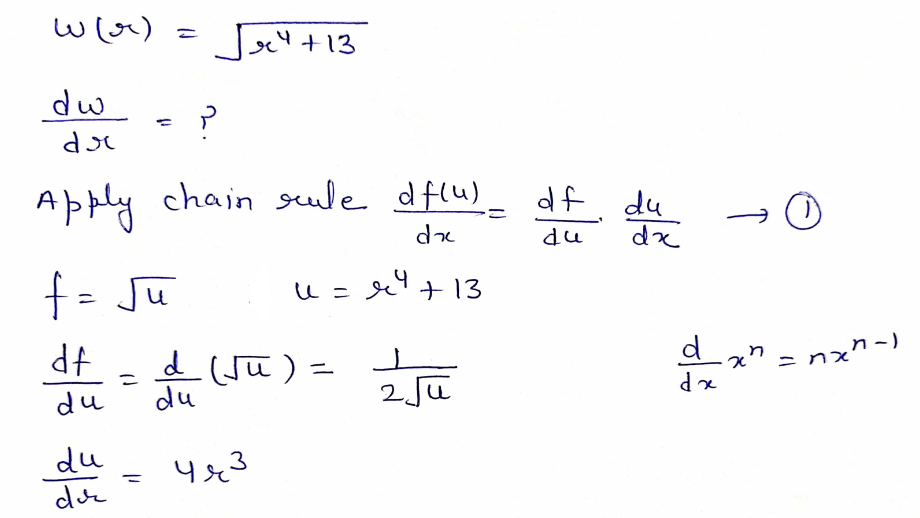 w(r) = √(r⁴+13)
dw/dr = ?
Apply chain rule df(u)/dx = df/du · du/dx → ①
f = √u u = r⁴ + 13
df/du = d/du (√u) = 1/(2√u) d/dx xⁿ = nxⁿ⁻¹
du/dr = 4r³